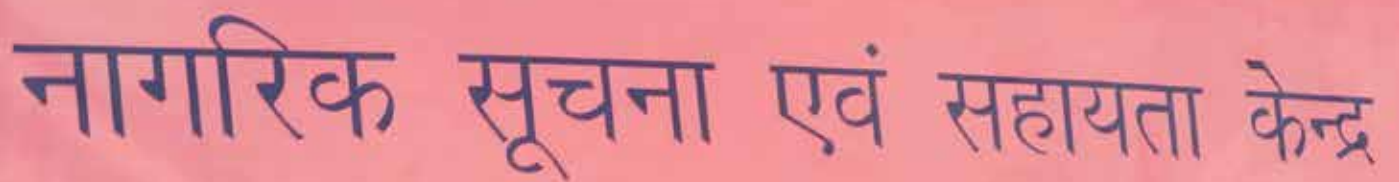 नागरिक सूचना एवं सहायता केन्द्र